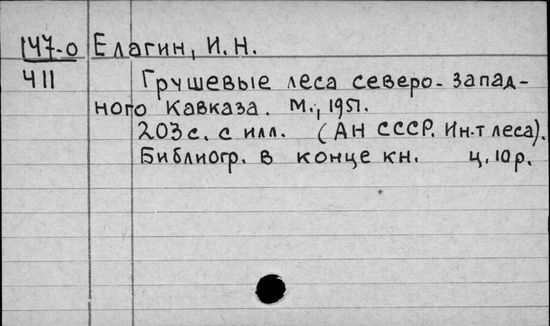 147-0 Елагин, И. Н.
411
Грушевые леса северо-запад-
ного Кавказа. М., 1951.
203 с. с илл. (АН СССР. Ин-т леса).
Библиогр. в конце кн. ц. 10 р.